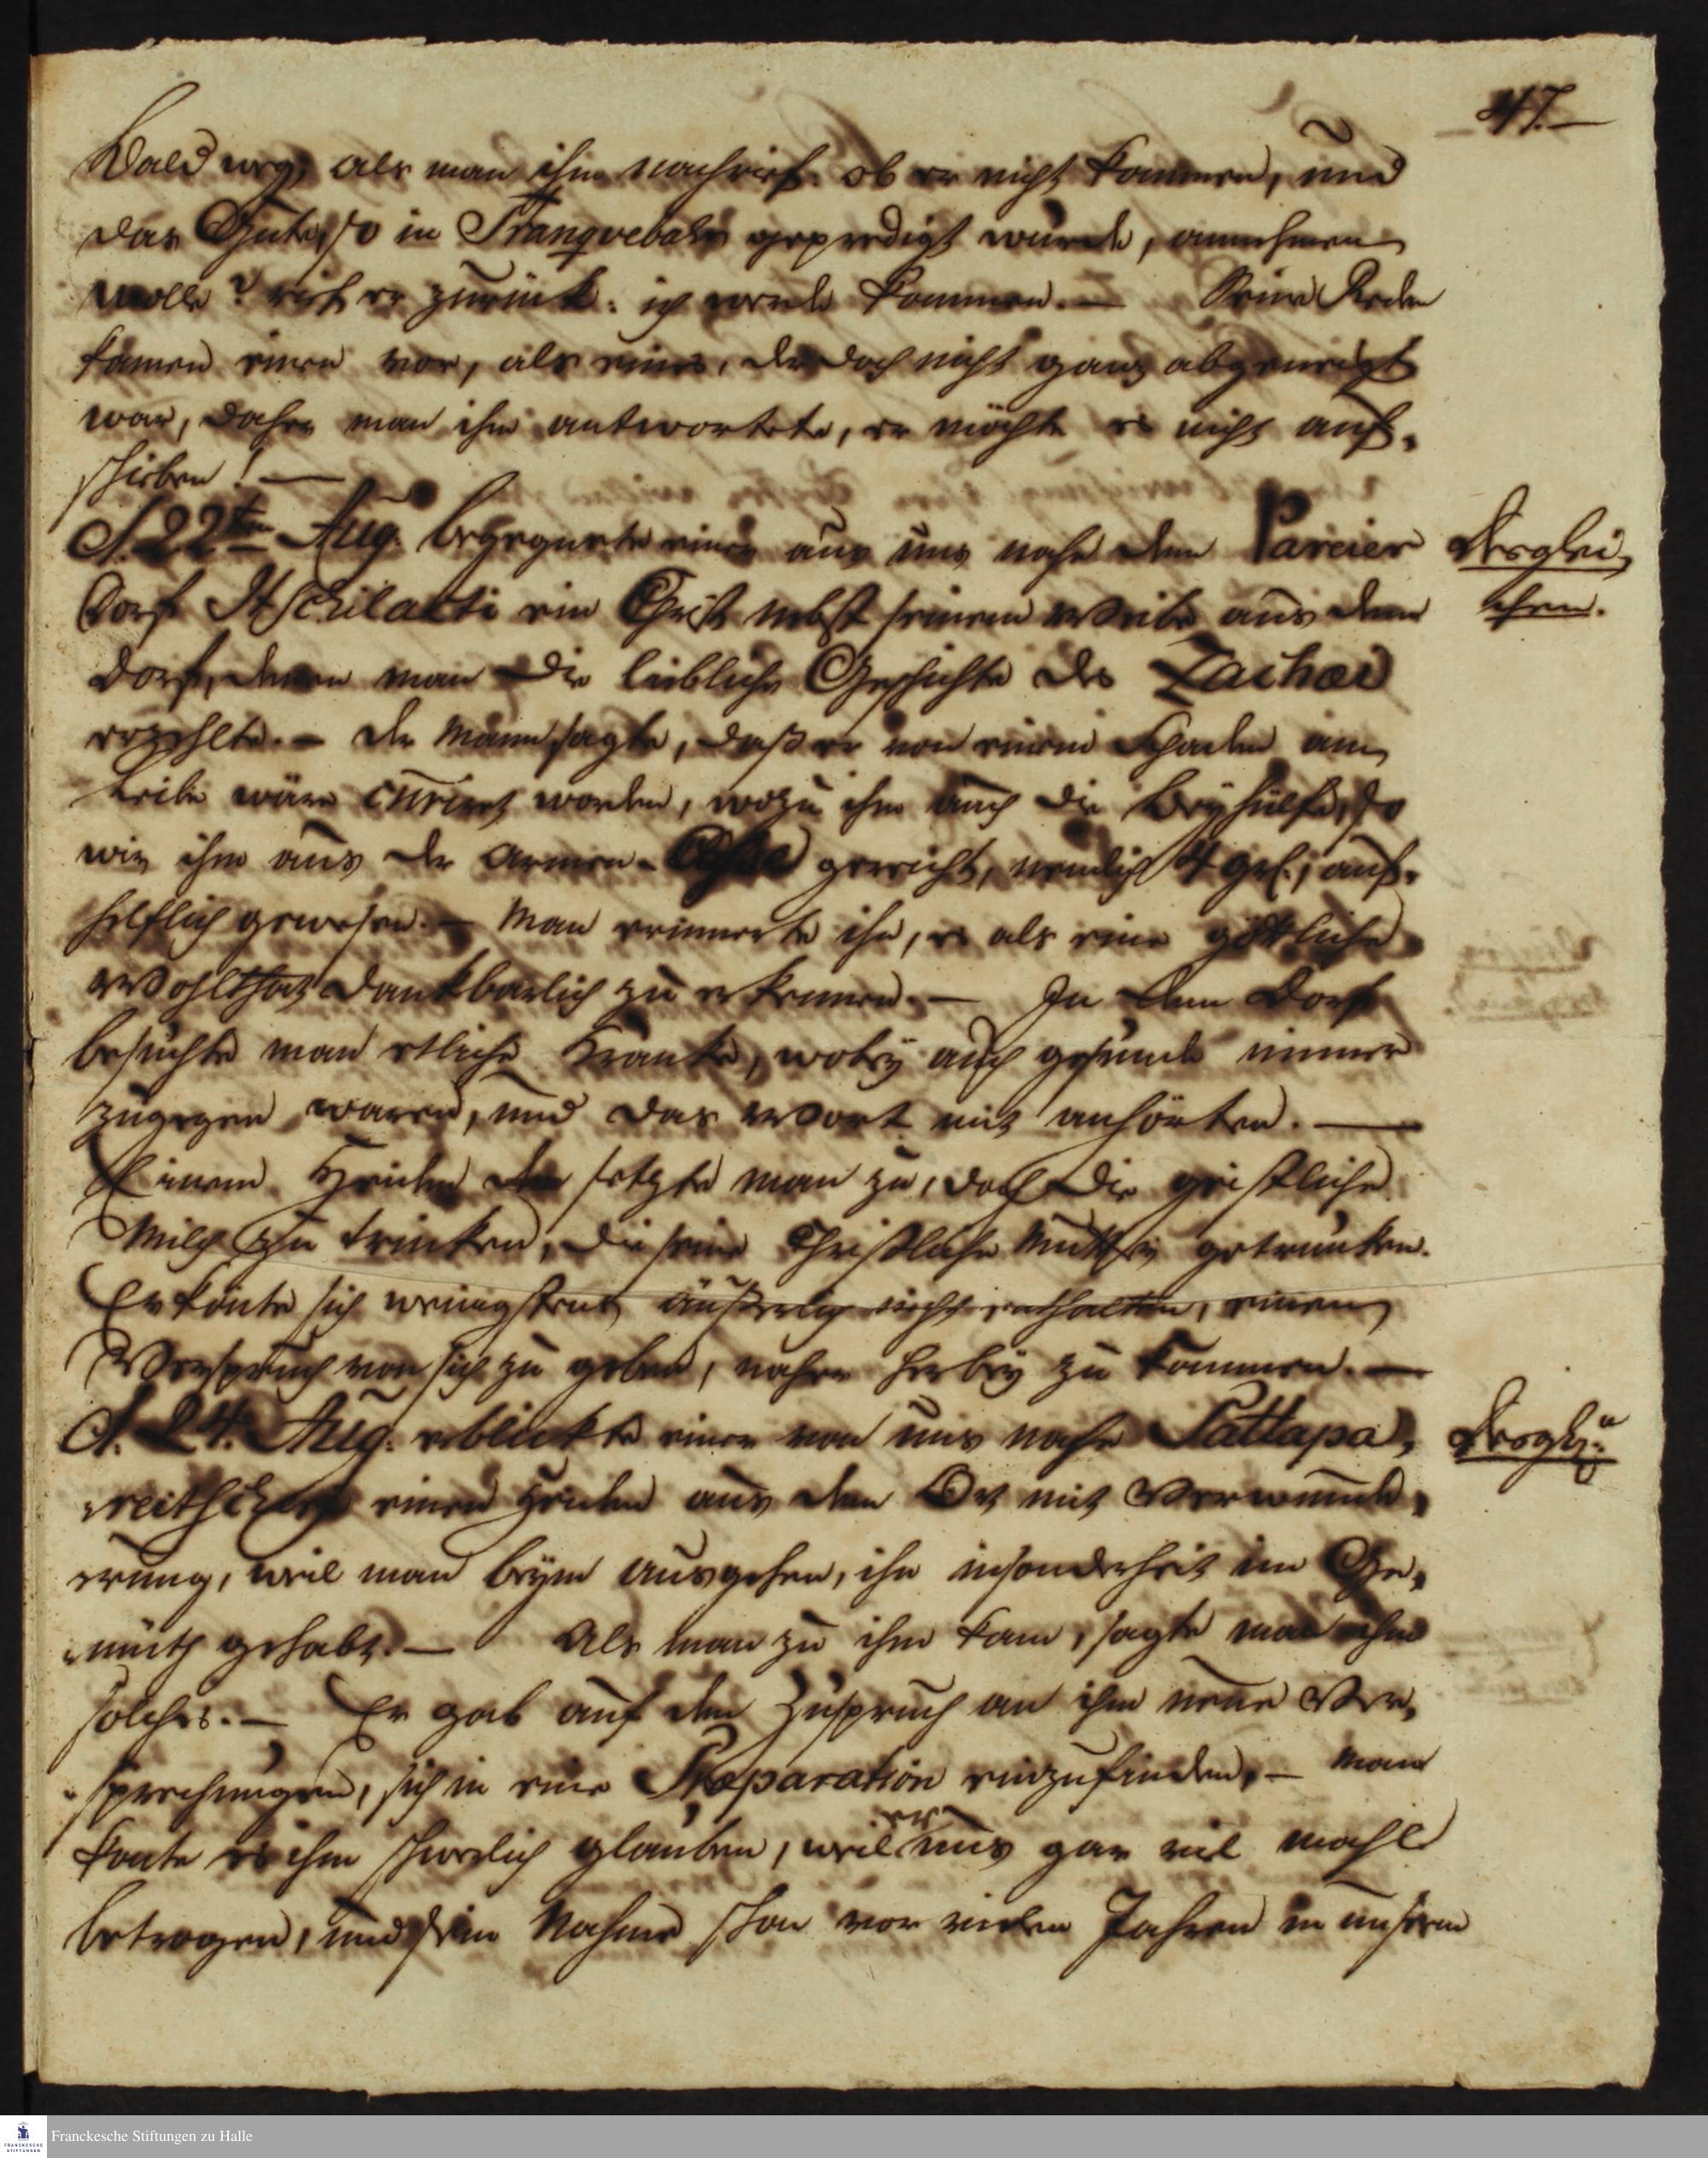 47.
bald weg; als man ihm nachrief: ob er nicht kommen, und
das Gute, so in Tranquebahr geprediget würde, annehmen
wolle? rief er zurück: ich werde kommen. — Seine Reden
kamen einen vor, als eines, der doch nicht ganz abgeneigt
war, daher man ihm antwortete, er möchte es nicht auf-
schieben! —
D. 22ten Aug. begegnete einen aus uns nahe dem Pareier
Dorf Itschilacti ein Christ nebst seinem Weibe aus dem
Dorf, denen man die liebliche Geschichte des Zachaei
erzehlte. — Der Mann sagte, daß er von einem Schaden am
Leibe wäre curiret worden, wozu ihm auch die Beyhülfe, so
wir ihm aus der Armen-Casse gereicht, nemlich 4 gr., auf-
helflich gewesen. — Man erinnerte ihn, es als eine göttliche
Wohlthat dankbarlich zu erkennen. — In dem Dorf
besuchte man etliche Kranke, wobey auch gesunde immer
zugegen waren, und das Wort mit anhörten. —
Einem Heiden setzte man zu, doch die geistliche
Milch zu trinken, die seine Christliche Mutter getrunken.
Er konte sich wenigstens äußerlich nicht enthalten, einen
Verspruch von sich zu geben, naher herbey zu kommen. —
D. 24. Aug. erblickte einer von uns nahe Sattapa-
reitscheri einen Heiden aus dem Ort mit Verwunde-
rung, weil man beym ausgehen, ihn insonderheit im Ge-
müth gehabt. — Als man zu ihm kam, sagte man ihm
solches. — Er gab auf den Zuspruch an ihm neue Ver-
sprechungen, sich in eine Præparation einzufinden, — Man
konte es ihm schwerlich glauben, weil er uns gar viel mahl
betrogen, und sein Nahme schon vor vielen Jahren in unserm
Derglei-
chen.
Dergl:n
Franckesche Stiftungen zu Halle